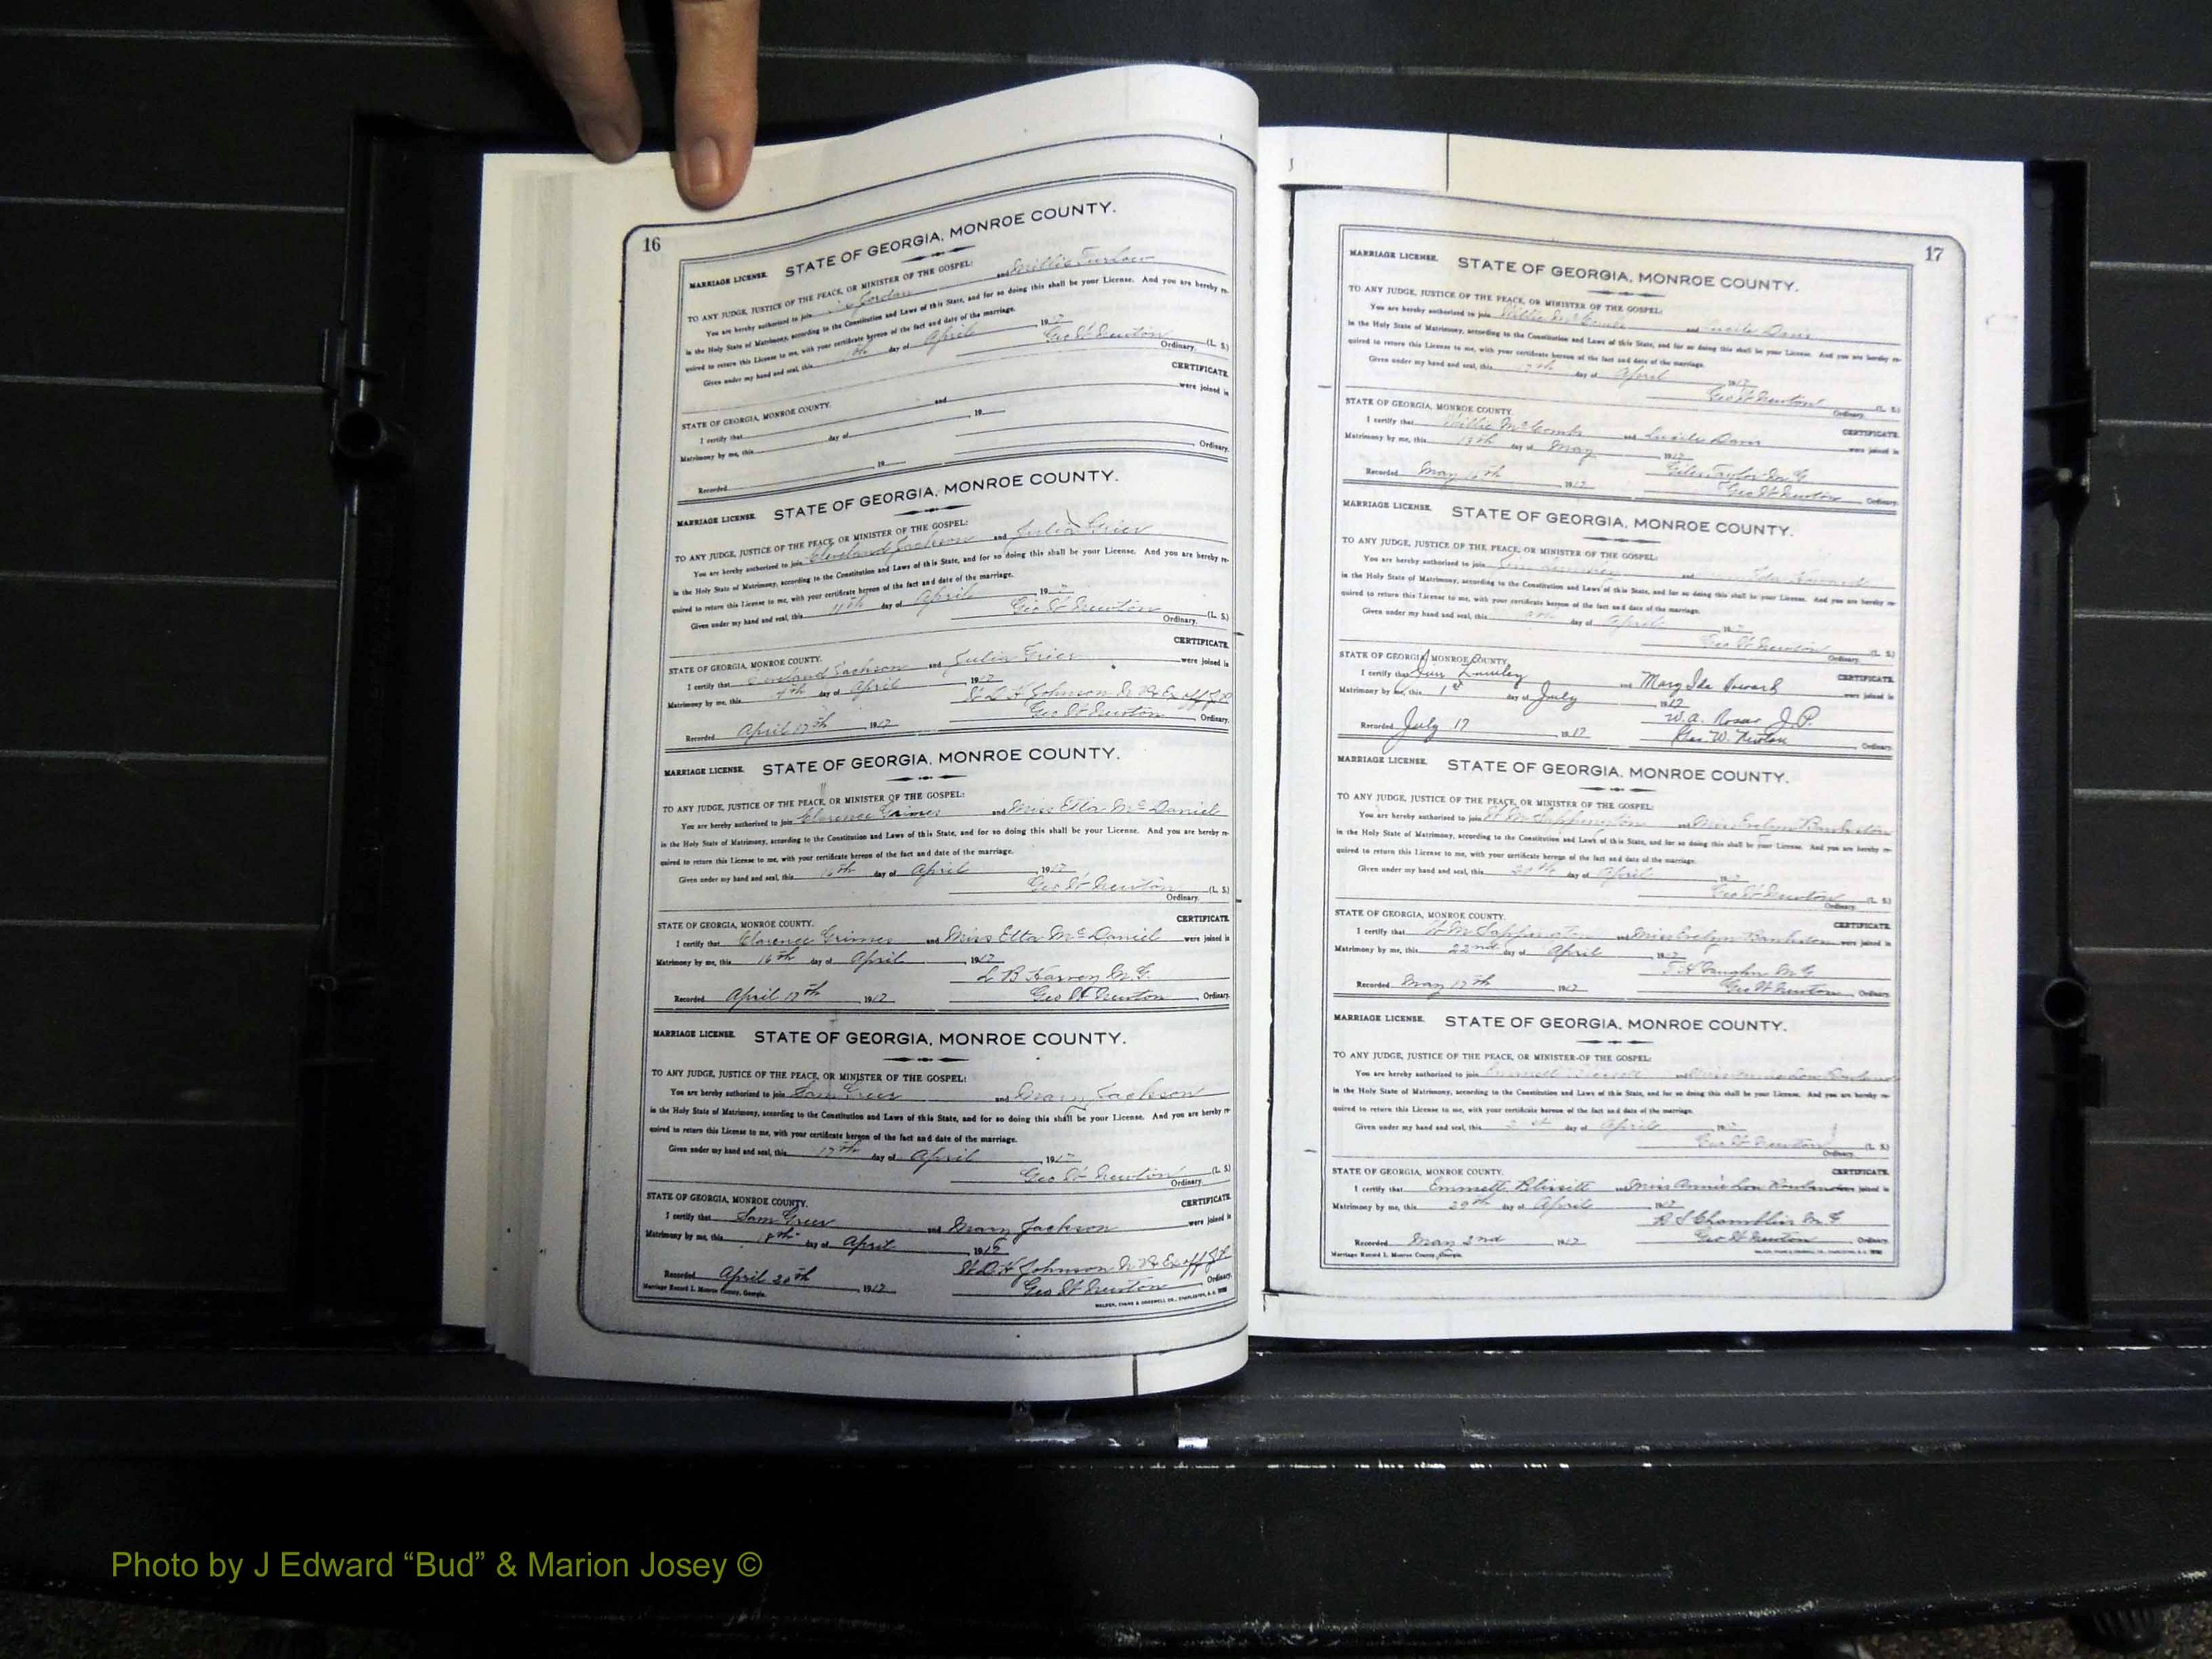 16
MARRIAGE LICENSE. STATE OF GEORGIA, MONROE COUNTY.
TO ANY JUDGE, JUSTICE OF THE PEACE, OR MINISTER OF THE GOSPEL:
You are hereby authorized to join Jordan and Millie Turlow
in the Holy State of Matrimony, according to the Constitution and Laws of this State, and for so doing this shall be your License. And you are hereby re-
quired to return this License to me, with your certificate hereon of the fact and date of the marriage.
Given under my hand and seal, this day of April, 1917
Geo W Newton (L. S.)
Ordinary.
CERTIFICATE.
STATE OF GEORGIA, MONROE COUNTY.
I certify that and were joined in
Matrimony by me, this day of , 19
Recorded , 19 Ordinary.
MARRIAGE LICENSE. STATE OF GEORGIA, MONROE COUNTY.
TO ANY JUDGE, JUSTICE OF THE PEACE, OR MINISTER OF THE GOSPEL:
You are hereby authorized to join Cleveland Jackson and Julia Grier
in the Holy State of Matrimony, according to the Constitution and Laws of this State, and for so doing this shall be your License. And you are hereby re-
quired to return this License to me, with your certificate hereon of the fact and date of the marriage.
Given under my hand and seal, this day of April, 19
Geo W Newton (L. S.)
Ordinary.
STATE OF GEORGIA, MONROE COUNTY. CERTIFICATE.
I certify that Cleveland Jackson and Julia Grier were joined in
Matrimony by me, this day of April, 1917
W D H Johnson N P & Ex off J P
Recorded April 17th, 1917 Geo W Newton Ordinary.
MARRIAGE LICENSE. STATE OF GEORGIA, MONROE COUNTY.
TO ANY JUDGE, JUSTICE OF THE PEACE, OR MINISTER OF THE GOSPEL:
You are hereby authorized to join Clarence Grimes and Miss Etta McDaniel
in the Holy State of Matrimony, according to the Constitution and Laws of this State, and for so doing this shall be your License. And you are hereby re-
quired to return this License to me, with your certificate hereon of the fact and date of the marriage.
Given under my hand and seal, this 16th day of April, 1917
Geo W Newton (L. S.)
Ordinary.
STATE OF GEORGIA, MONROE COUNTY. CERTIFICATE.
I certify that Clarence Grimes and Miss Etta McDaniel were joined in
Matrimony by me, this 16th day of April, 1917
L B Harvey M.G.
Recorded April 17th, 1917 Geo W Newton, Ordinary.
MARRIAGE LICENSE. STATE OF GEORGIA, MONROE COUNTY.
TO ANY JUDGE, JUSTICE OF THE PEACE, OR MINISTER OF THE GOSPEL:
You are hereby authorized to join Sam Greer and Mary Jackson
in the Holy State of Matrimony, according to the Constitution and Laws of this State, and for so doing this shall be your License. And you are hereby re-
quired to return this License to me, with your certificate hereon of the fact and date of the marriage.
Given under my hand and seal, this 17th day of April, 19
Geo W Newton (L. S.)
Ordinary.
STATE OF GEORGIA, MONROE COUNTY. CERTIFICATE.
I certify that Sam Greer and Mary Jackson were joined in
Matrimony by me, this 18th day of April, 1917
W D H Johnson N P & Ex off J P
Recorded April 20th, 1917 Geo W Newton, Ordinary.
Marriage Record L Monroe County, Georgia. WALKER, EVANS & COGSWELL CO., CHARLESTON, S. C.
17
MARRIAGE LICENSE. STATE OF GEORGIA, MONROE COUNTY.
TO ANY JUDGE, JUSTICE OF THE PEACE, OR MINISTER OF THE GOSPEL:
You are hereby authorized to join Willie McComb and Lucile Davis
in the Holy State of Matrimony, according to the Constitution and Laws of this State, and for so doing this shall be your License. And you are hereby re-
quired to return this License to me, with your certificate hereon of the fact and date of the marriage.
Given under my hand and seal, this day of April, 1917
Geo W Newton (L. S.)
Ordinary.
STATE OF GEORGIA, MONROE COUNTY. CERTIFICATE.
I certify that Willie McComb and Lucile Davis were joined in
Matrimony by me, this 13th day of May, 1917
Giles Taylor M G
Recorded May, 1917 Geo W Newton, Ordinary.
MARRIAGE LICENSE. STATE OF GEORGIA, MONROE COUNTY.
TO ANY JUDGE, JUSTICE OF THE PEACE, OR MINISTER OF THE GOSPEL:
You are hereby authorized to join and Ida Howard
in the Holy State of Matrimony, according to the Constitution and Laws of this State, and for so doing this shall be your License. And you are hereby re-
quired to return this License to me, with your certificate hereon of the fact and date of the marriage.
Given under my hand and seal, this day of April, 19
Geo W Newton (L. S.)
Ordinary.
STATE OF GEORGIA, MONROE COUNTY. CERTIFICATE.
I certify that Jim and Mary Ida Howard were joined in
Matrimony by me, this 1st day of July, 1917
W. A. J. P.
Recorded July 17, 1917 Geo. W. Newton, Ordinary.
MARRIAGE LICENSE. STATE OF GEORGIA, MONROE COUNTY.
TO ANY JUDGE, JUSTICE OF THE PEACE, OR MINISTER OF THE GOSPEL:
You are hereby authorized to join W M Sappington and Miss Evelyn Bankston
in the Holy State of Matrimony, according to the Constitution and Laws of this State, and for so doing this shall be your License. And you are hereby re-
quired to return this License to me, with your certificate hereon of the fact and date of the marriage.
Given under my hand and seal, this 20th day of April, 19
Geo W Newton (L. S.)
Ordinary.
STATE OF GEORGIA, MONROE COUNTY. CERTIFICATE.
I certify that W M Sappington and Miss Evelyn Bankston were joined in
Matrimony by me, this 22nd day of April, 1917
Vaughn M G
Recorded May 17th, 1917 Geo W Newton, Ordinary.
MARRIAGE LICENSE. STATE OF GEORGIA, MONROE COUNTY.
TO ANY JUDGE, JUSTICE OF THE PEACE, OR MINISTER OF THE GOSPEL:
You are hereby authorized to join Emmett Blissitt and Miss Annie Lou Rowland
in the Holy State of Matrimony, according to the Constitution and Laws of this State, and for so doing this shall be your License. And you are hereby re-
quired to return this License to me, with your certificate hereon of the fact and date of the marriage.
Given under my hand and seal, this day of April, 19
Geo W Newton (L. S.)
Ordinary.
STATE OF GEORGIA, MONROE COUNTY. CERTIFICATE.
I certify that Emmett Blissitt and Miss Annie Lou Rowland were joined in
Matrimony by me, this 29th day of April, 1917
R S Chamblin M G
Recorded May 2nd, 1917 Geo W Newton, Ordinary.
Marriage Record L Monroe County, Georgia.
Photo by J Edward “Bud” & Marion Josey ©